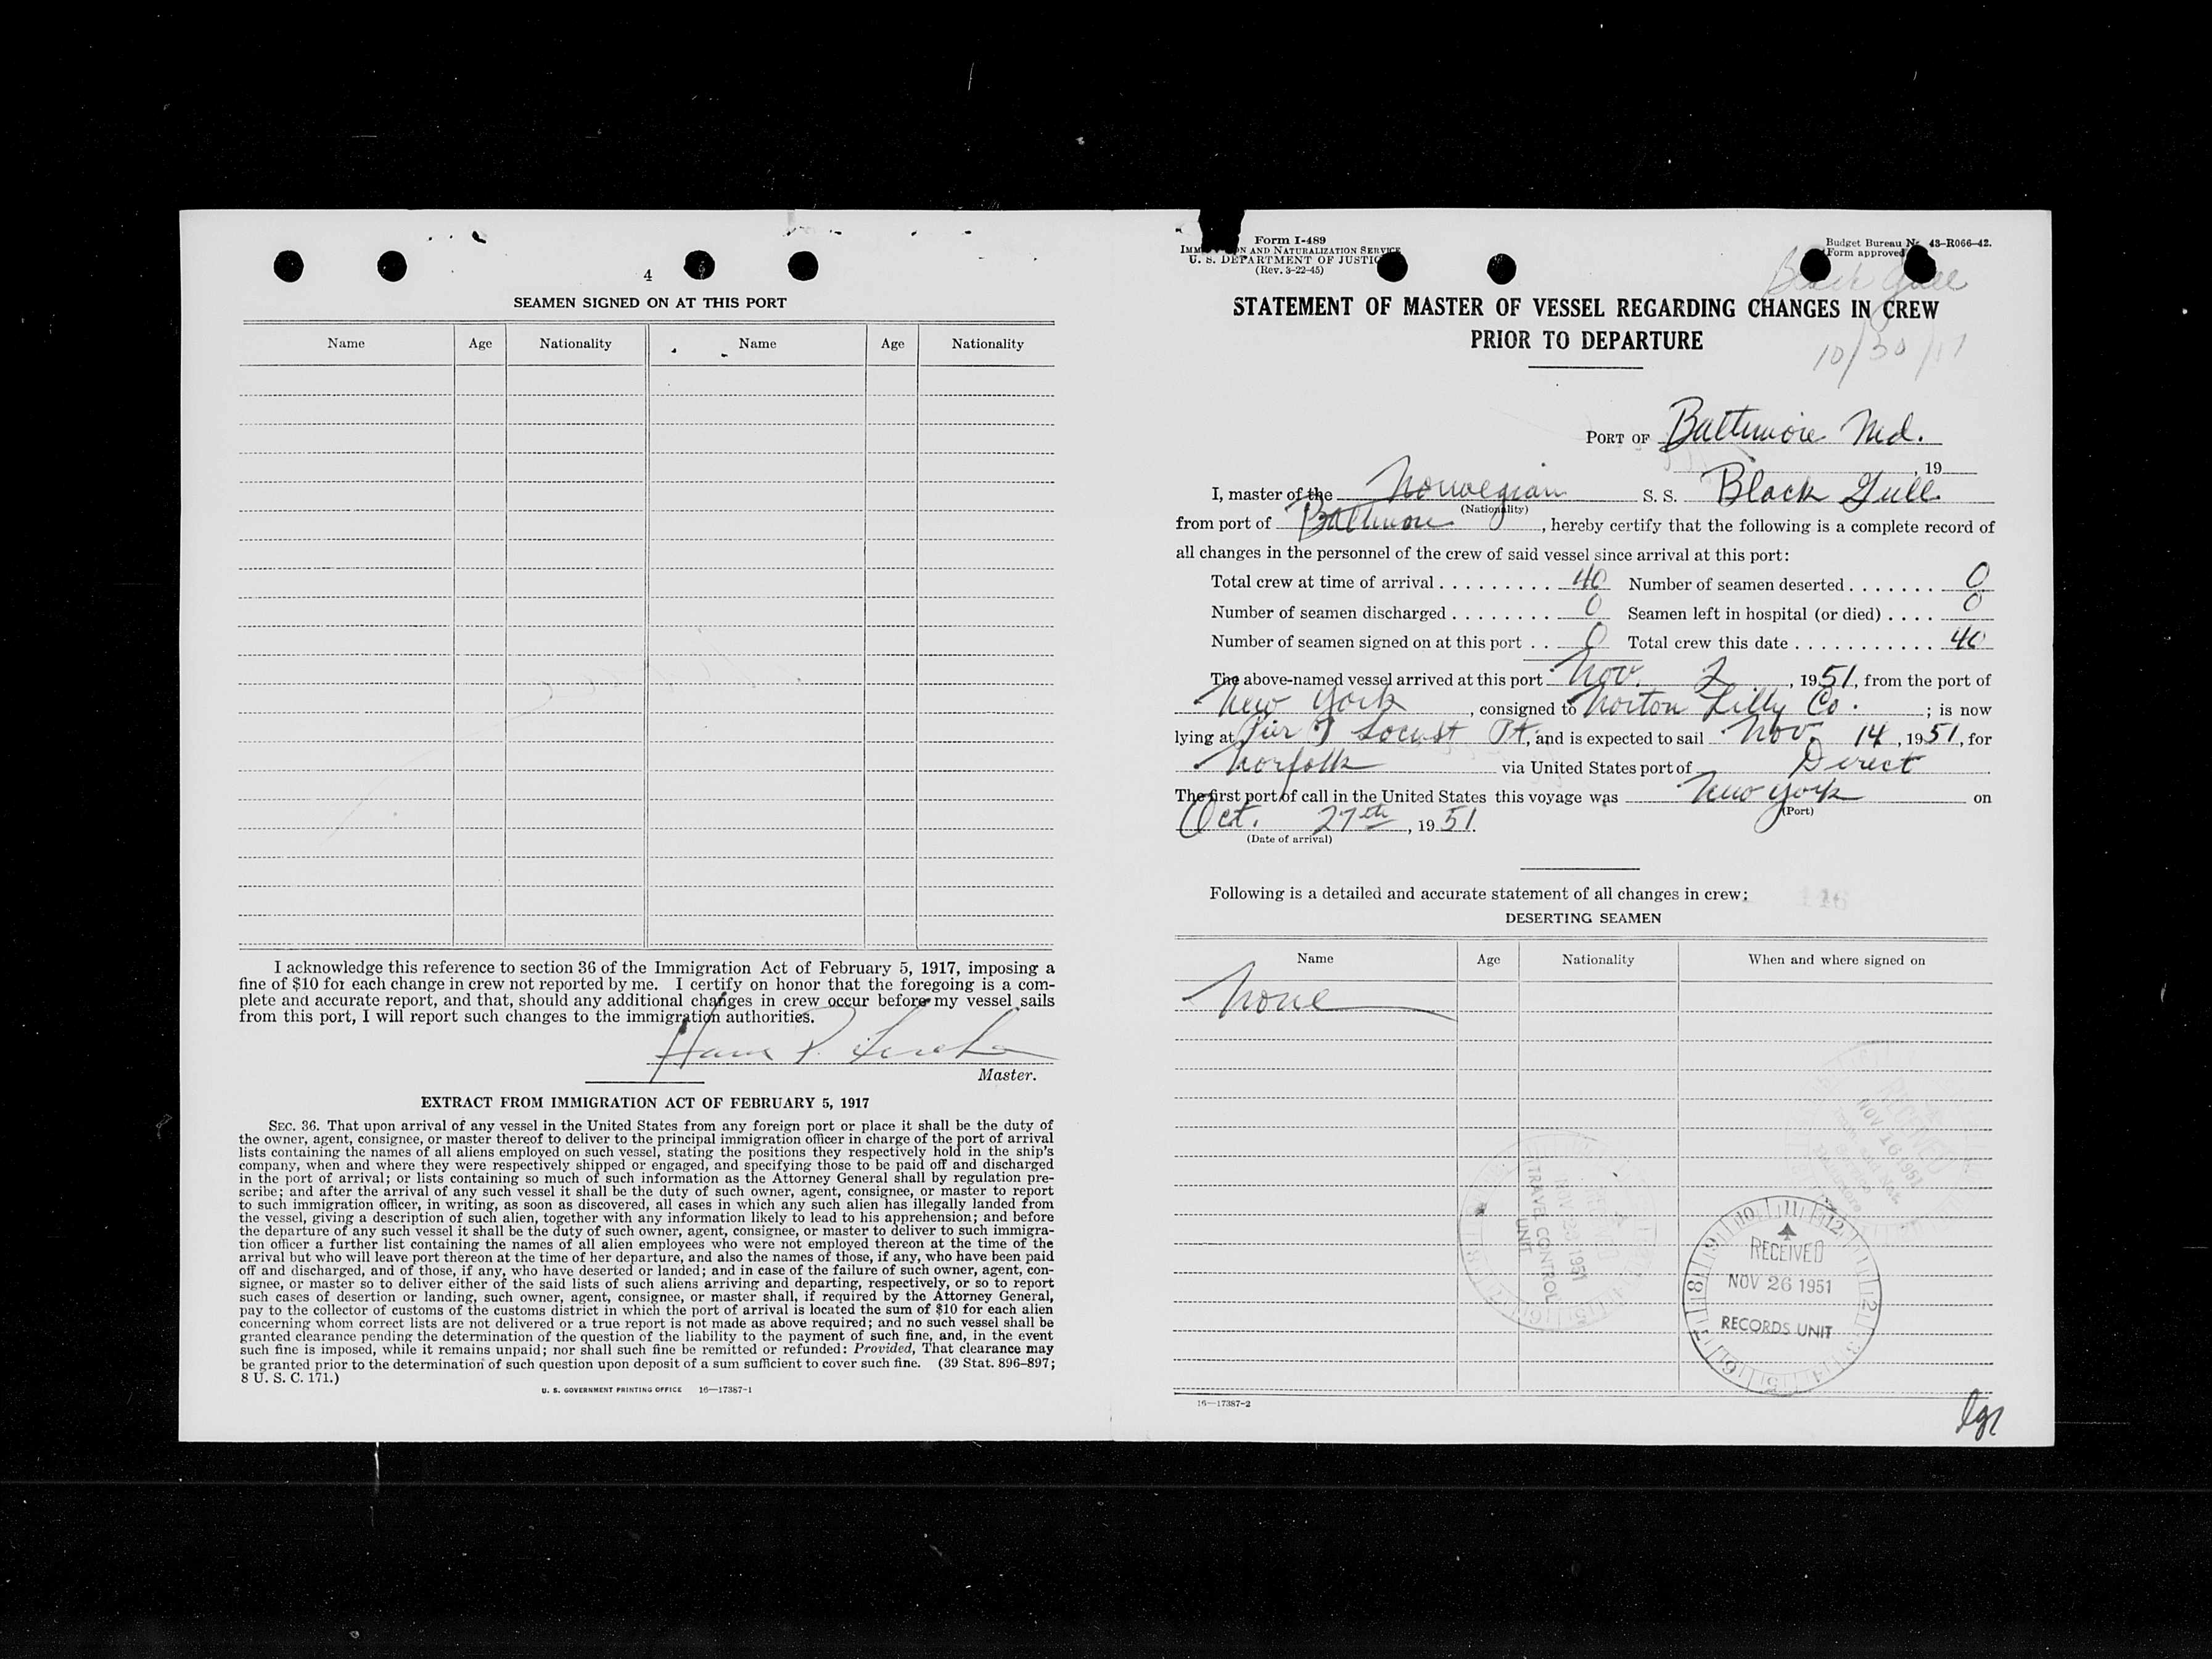 4
SEAMEN SIGNED ON AT THIS PORT
Name Age Nationality Name Age Nationality
I acknowledge this reference to section 36 of the Immigration Act of February 5, 1917, imposing a
fine of $10 for each change in crew not reported by me. I certify on honor that the foregoing is a com-
plete and accurate report, and that, should any additional changes in crew occur before my vessel sails
from this port, I will report such changes to the immigration authorities.
Master.
EXTRACT FROM IMMIGRATION ACT OF FEBRUARY 5, 1917
SEC. 36. That upon arrival of any vessel in the United States from any foreign port or place it shall be the duty of
the owner, agent, consignee, or master thereof to deliver to the principal immigration officer in charge of the port of arrival
lists containing the names of all aliens employed on such vessel, stating the positions they respectively hold in the ship's
company, when and where they were respectively shipped or engaged, and specifying those to be paid off and discharged
in the port of arrival; or lists containing so much of such information as the Attorney General shall by regulation pre-
scribe; and after the arrival of any such vessel it shall be the duty of such owner, agent, consignee, or master to report
to such immigration officer, in writing, as soon as discovered, all cases in which any such alien has illegally landed from
the vessel, giving a description of such alien, together with any information likely to lead to his apprehension; and before
the departure of any such vessel it shall be the duty of such owner, agent, consignee, or master to deliver to such immigra-
tion officer a further list containing the names of all alien employees who were not employed thereon at the time of the
arrival but who will leave port thereon at the time of her departure, and also the names of those, if any, who have been paid
off and discharged, and of those, if any, who have deserted or landed; and in case of the failure of such owner, agent, con-
signee, or master so to deliver either of the said lists of such aliens arriving and departing, respectively, or so to report
such cases of desertion or landing, such owner, agent, consignee, or master shall, if required by the Attorney General,
pay to the collector of customs of the customs district in which the port of arrival is located the sum of $10 for each alien
concerning whom correct lists are not delivered or a true report is not made as above required; and no such vessel shall be
granted clearance pending the determination of the question of the liability to the payment of such fine, and, in the event
such fine is imposed, while it remains unpaid; nor shall such fine be remitted or refunded: Provided, That clearance may
be granted prior to the determination of such question upon deposit of a sum sufficient to cover such fine. (39 Stat. 896–897;
8 U. S. C. 171.)
U. S. GOVERNMENT PRINTING OFFICE 16—17387-1
Form I-489
AND NATURALIZATION SERVICE
U. S. DEPARTMENT OF JUSTICE
(Rev. 3-22-45)
Budget Bureau No. 43-R066-42.
Form approved
Black Gull
10/30/
STATEMENT OF MASTER OF VESSEL REGARDING CHANGES IN CREW
PRIOR TO DEPARTURE
PORT OF Baltimore Md.
, 19
I, master of the Norwegian S. S. Black Gull
(Nationality)
from port of Baltimore, hereby certify that the following is a complete record of
all changes in the personnel of the crew of said vessel since arrival at this port:
Total crew at time of arrival 40 Number of seamen deserted 0
Number of seamen discharged 0 Seamen left in hospital (or died) 0
Number of seamen signed on at this port 0 Total crew this date 40
The above-named vessel arrived at this port Nov. 2, 1951, from the port of
New York, consigned to Norton Lilly Co.; is now
lying at Pier Locust Pt, and is expected to sail Nov. 14, 1951, for
Norfolk via United States port of Direct
The first port of call in the United States this voyage was New York on
(Port)
Oct. 27th, 1951.
(Date of arrival)
Following is a detailed and accurate statement of all changes in crew:
DESERTING SEAMEN
Name Age Nationality When and where signed on
None
RECEIVED
NOV 16 1951
NOV 23 1951
TRAVEL CONTROL
UNIT
RECEIVED
NOV 26 1951
RECORDS UNIT
16—17387-2